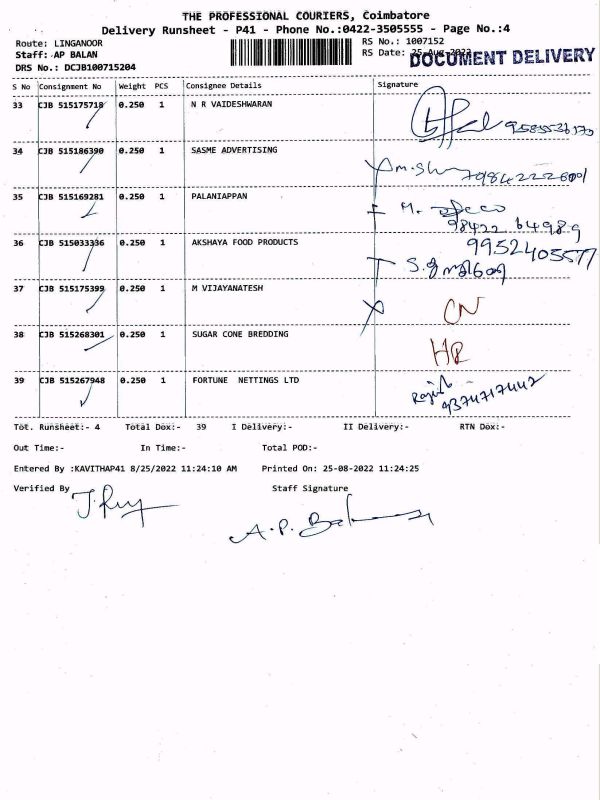 THE PROFESSIONAL COURIERS, Coimbatore
Delivery Runsheet - P41 - Phone No.:0422-3505555 - Page No.:4
Route: LINGANOOR RS No.: 1007152
Staff: AP BALAN RS Date: 25-Aug-2022 DOCUMENT DELIVERY
DRS No.: DCJB100715204
S No Consignment No Weight PCS Consignee Details Signature
33 CJB 515175718 0.250 1 N R VAIDESHWARAN
34 CJB 515186390 0.250 1 SASME ADVERTISING
35 CJB 515169281 0.250 1 PALANIAPPAN M.
98422 64989
36 CJB 515033336 0.250 1 AKSHAYA FOOD PRODUCTS 9952405577
37 CJB 515175399 0.250 1 M VIJAYANATESH CN
38 CJB 515268301 0.250 1 SUGAR CONE BREDDING HR
39 CJB 515267948 0.250 1 FORTUNE NETTINGS LTD
9374717442
Tot. Runsheet:- 4 Total Dox:- 39 I Delivery:- II Delivery:- RTN Dox:-
Out Time:- In Time:- Total POD:-
Entered By :KAVITHAP41 8/25/2022 11:24:10 AM Printed On: 25-08-2022 11:24:25
Verified By Staff Signature
A.P. Bal